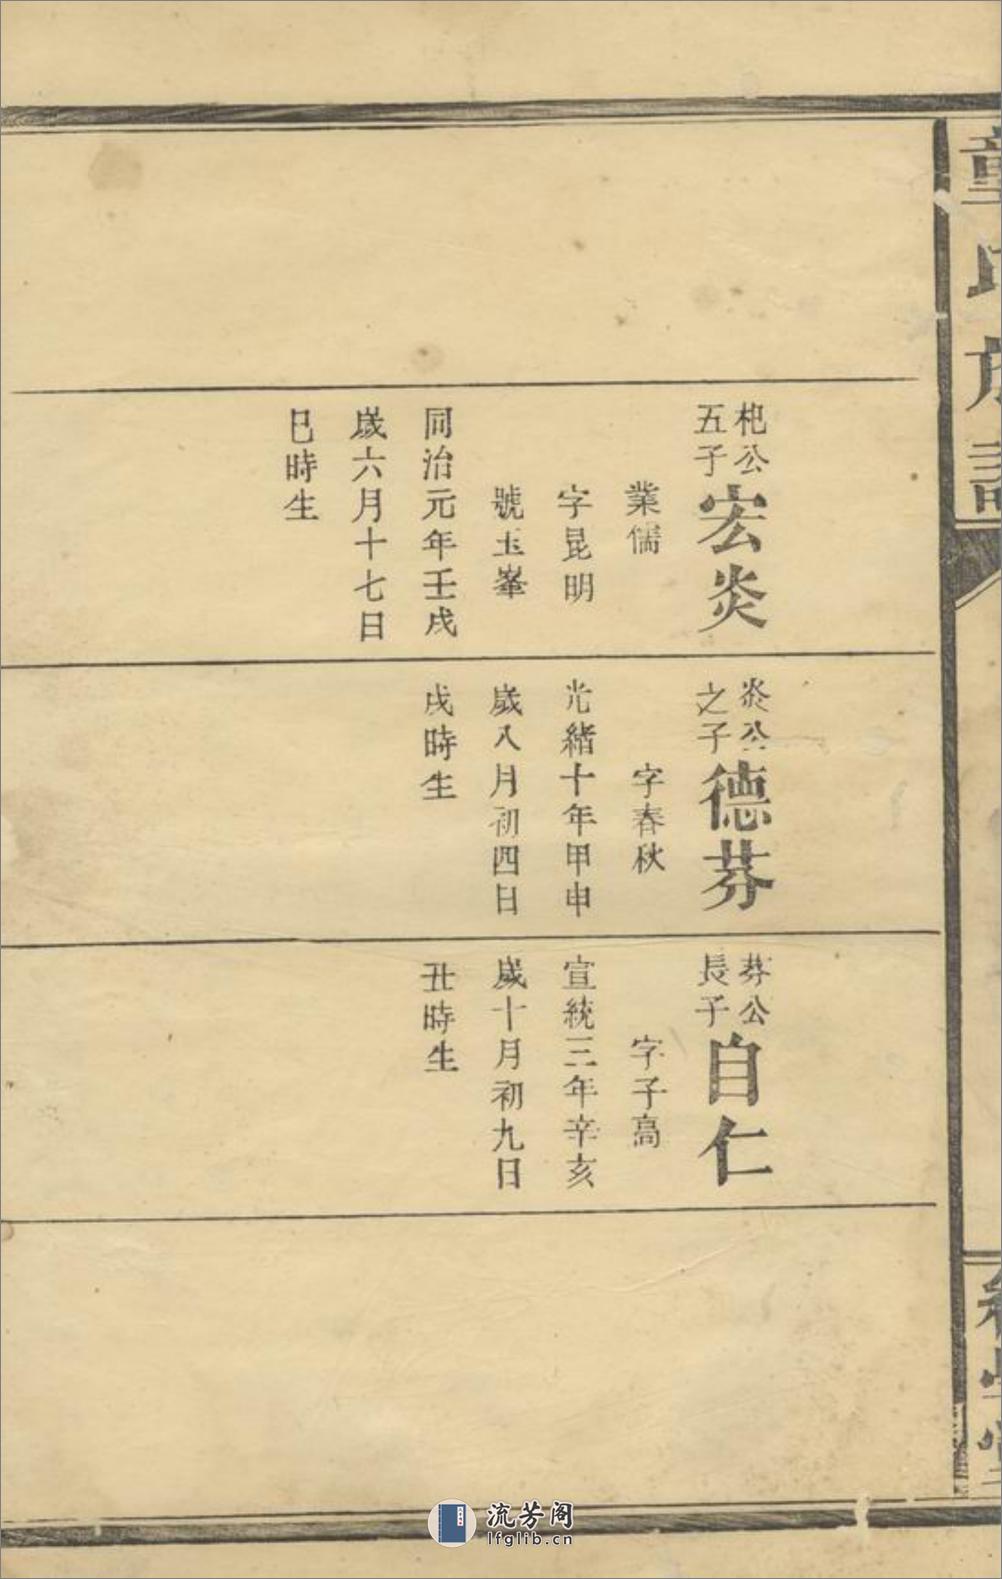 童氏族譜
杷公
五子
宏炎
業儒
字昆明
號玉峯
同治元年壬戌
歲六月十七日
巳時生
炎公
之子
德芬
字春秋
光緒十年甲申
歲八月初四日
戌時生
芬公
長子
自仁
字子高
宣統三年辛亥
歲十月初九日
丑時生
流芳阁
lfglib.cn